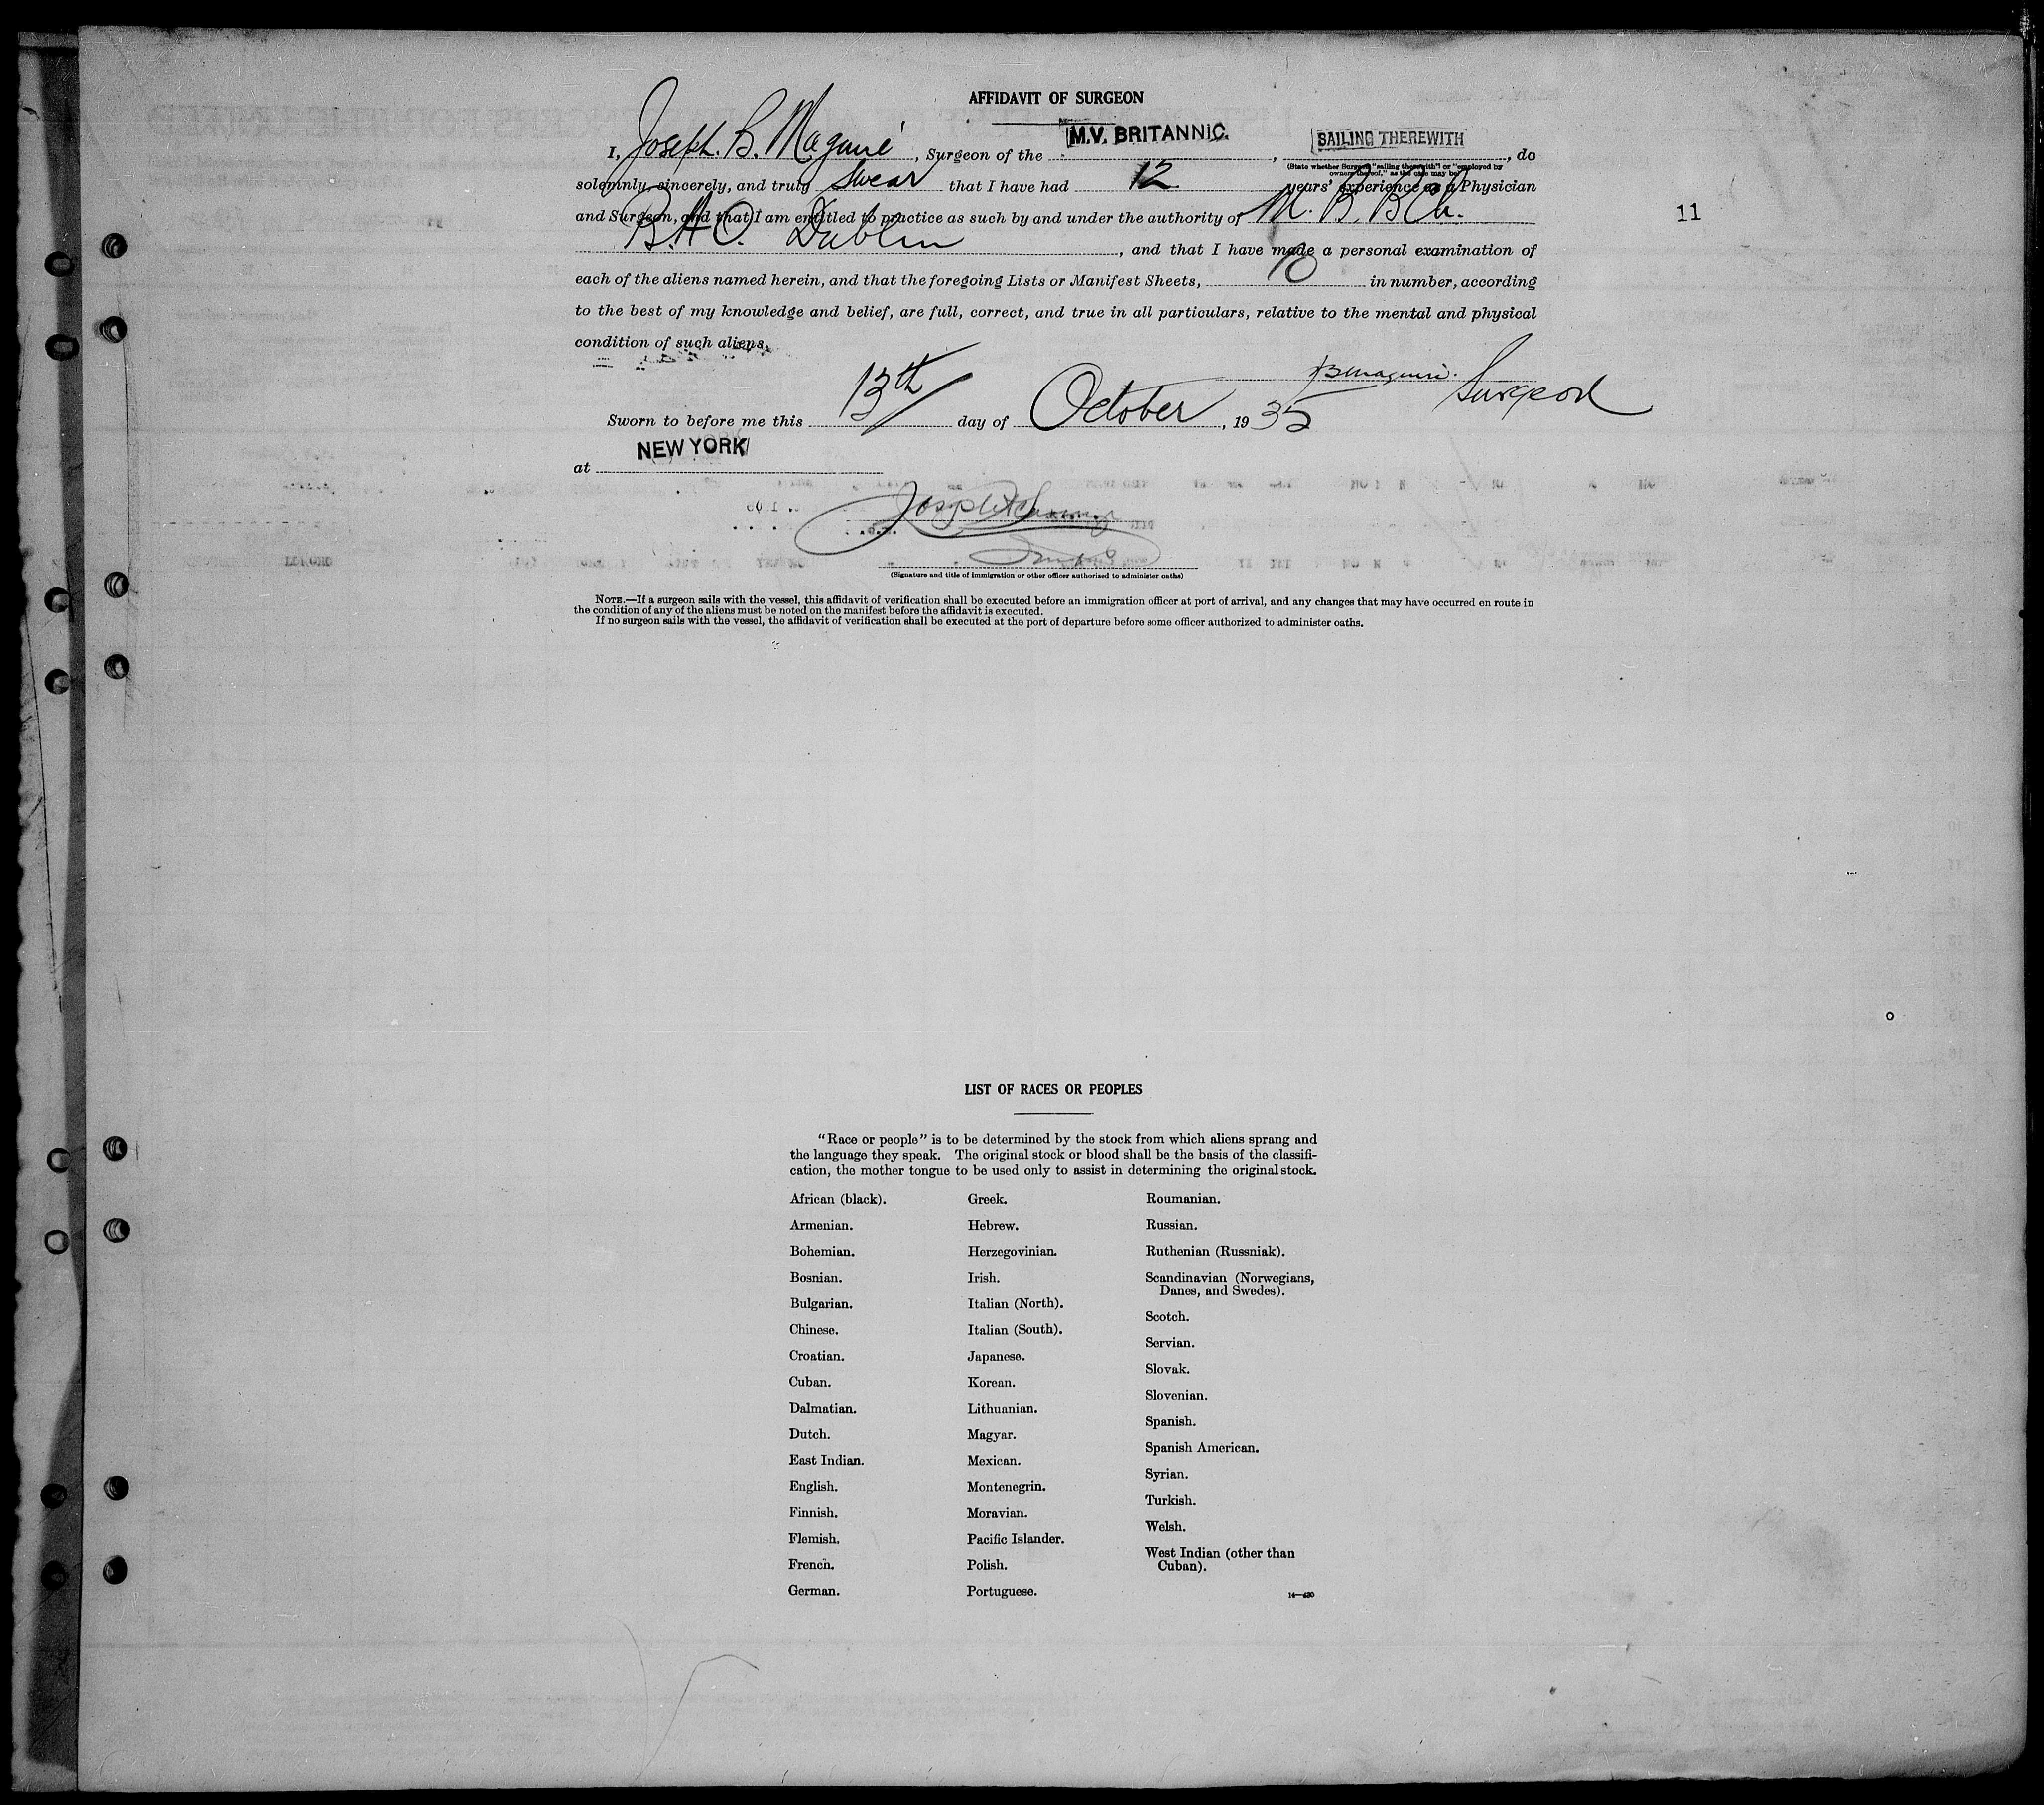 AFFIDAVIT OF SURGEON
I, Joseph. B. Maguire, Surgeon of the M.V. BRITANNIC., SAILING THEREWITH, do
(State whether Surgeon "sailing therewith" or "employed by
owners thereof," as the case may be)
solemnly, sincerely, and truly swear that I have had 12 years' experience as a Physician
and Surgeon, and that I am entitled to practice as such by and under the authority of M. B. BCh.
11
B.A.O. Dublin, and that I have made a personal examination of
each of the aliens named herein, and that the foregoing Lists or Manifest Sheets, 10 in number, according
to the best of my knowledge and belief, are full, correct, and true in all particulars, relative to the mental and physical
condition of such aliens.
JBMaguire. Surgeon
Sworn to before me this 13th day of October, 1935
at NEW YORK
(Signature and title of immigration or other officer authorized to administer oaths)
NOTE.—If a surgeon sails with the vessel, this affidavit of verification shall be executed before an immigration officer at port of arrival, and any changes that may have occurred en route in
the condition of any of the aliens must be noted on the manifest before the affidavit is executed.
If no surgeon sails with the vessel, the affidavit of verification shall be executed at the port of departure before some officer authorized to administer oaths.
LIST OF RACES OR PEOPLES
"Race or people" is to be determined by the stock from which aliens sprang and
the language they speak. The original stock or blood shall be the basis of the classifi-
cation, the mother tongue to be used only to assist in determining the original stock.
African (black).
Armenian.
Bohemian.
Bosnian.
Bulgarian.
Chinese.
Croatian.
Cuban.
Dalmatian.
Dutch.
East Indian.
English.
Finnish.
Flemish.
French.
German.
Greek.
Hebrew.
Herzegovinian.
Irish.
Italian (North).
Italian (South).
Japanese.
Korean.
Lithuanian.
Magyar.
Mexican.
Montenegrin.
Moravian.
Pacific Islander.
Polish.
Portuguese.
Roumanian.
Russian.
Ruthenian (Russniak).
Scandinavian (Norwegians,
Danes, and Swedes).
Scotch.
Servian.
Slovak.
Slovenian.
Spanish.
Spanish American.
Syrian.
Turkish.
Welsh.
West Indian (other than
Cuban).
14—430